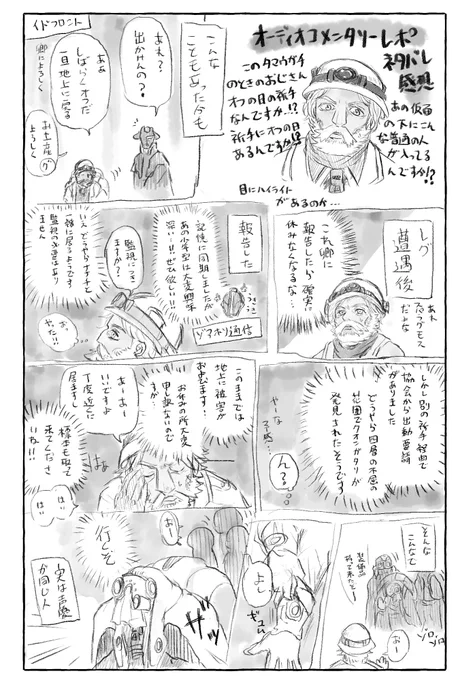 オーディオコメンタリーレポ
ネタバレ
感想
このタマウガチ
のときのおじさん
オフの日の祈手
なんですか!?
祈手にオフの日
あるんですか!?
あの仮面
の下にこん
な普通の人
が入ってる
んですか!?
目にハイライト
があるのか…
こんな
こともあったかも
イドフロント
あれ?
出かけんの?
しばらくオフだ
一旦地上に戻る
卿によろしく
お土産
よろしく
レグ
遭遇後
これ卿に
報告したら確実に
休みなくなるな…
報告した
記憶に同期しましたが
あの少年型は大変興味
深い…!!ぜひ欲しい!!
ゾアホリ通信
監視につき
ますか?
いえ、どうやらナナチと
一緒に居るようです
監視の必要はあり
ません
しかし別の祈手経由で
協会から出動要請
がありました
どうやら四層の不屈の
花園でクオンガタリが
発見されたそうです
やーな
予感…
ん?
このままでは
地上に被害が
お休みの所大変
申し訳ないので
すが
あーあー
いいですよ
丁度近くに
居ますし
標本も取って
来てくださ
いね!!
はい
はい
そんな
こんなで
装備品
持って来たぞー
おー
ゾロ
ゾロ
よし
ギュム
おー
行くぞ
ザッ
実は声優
が同じ人